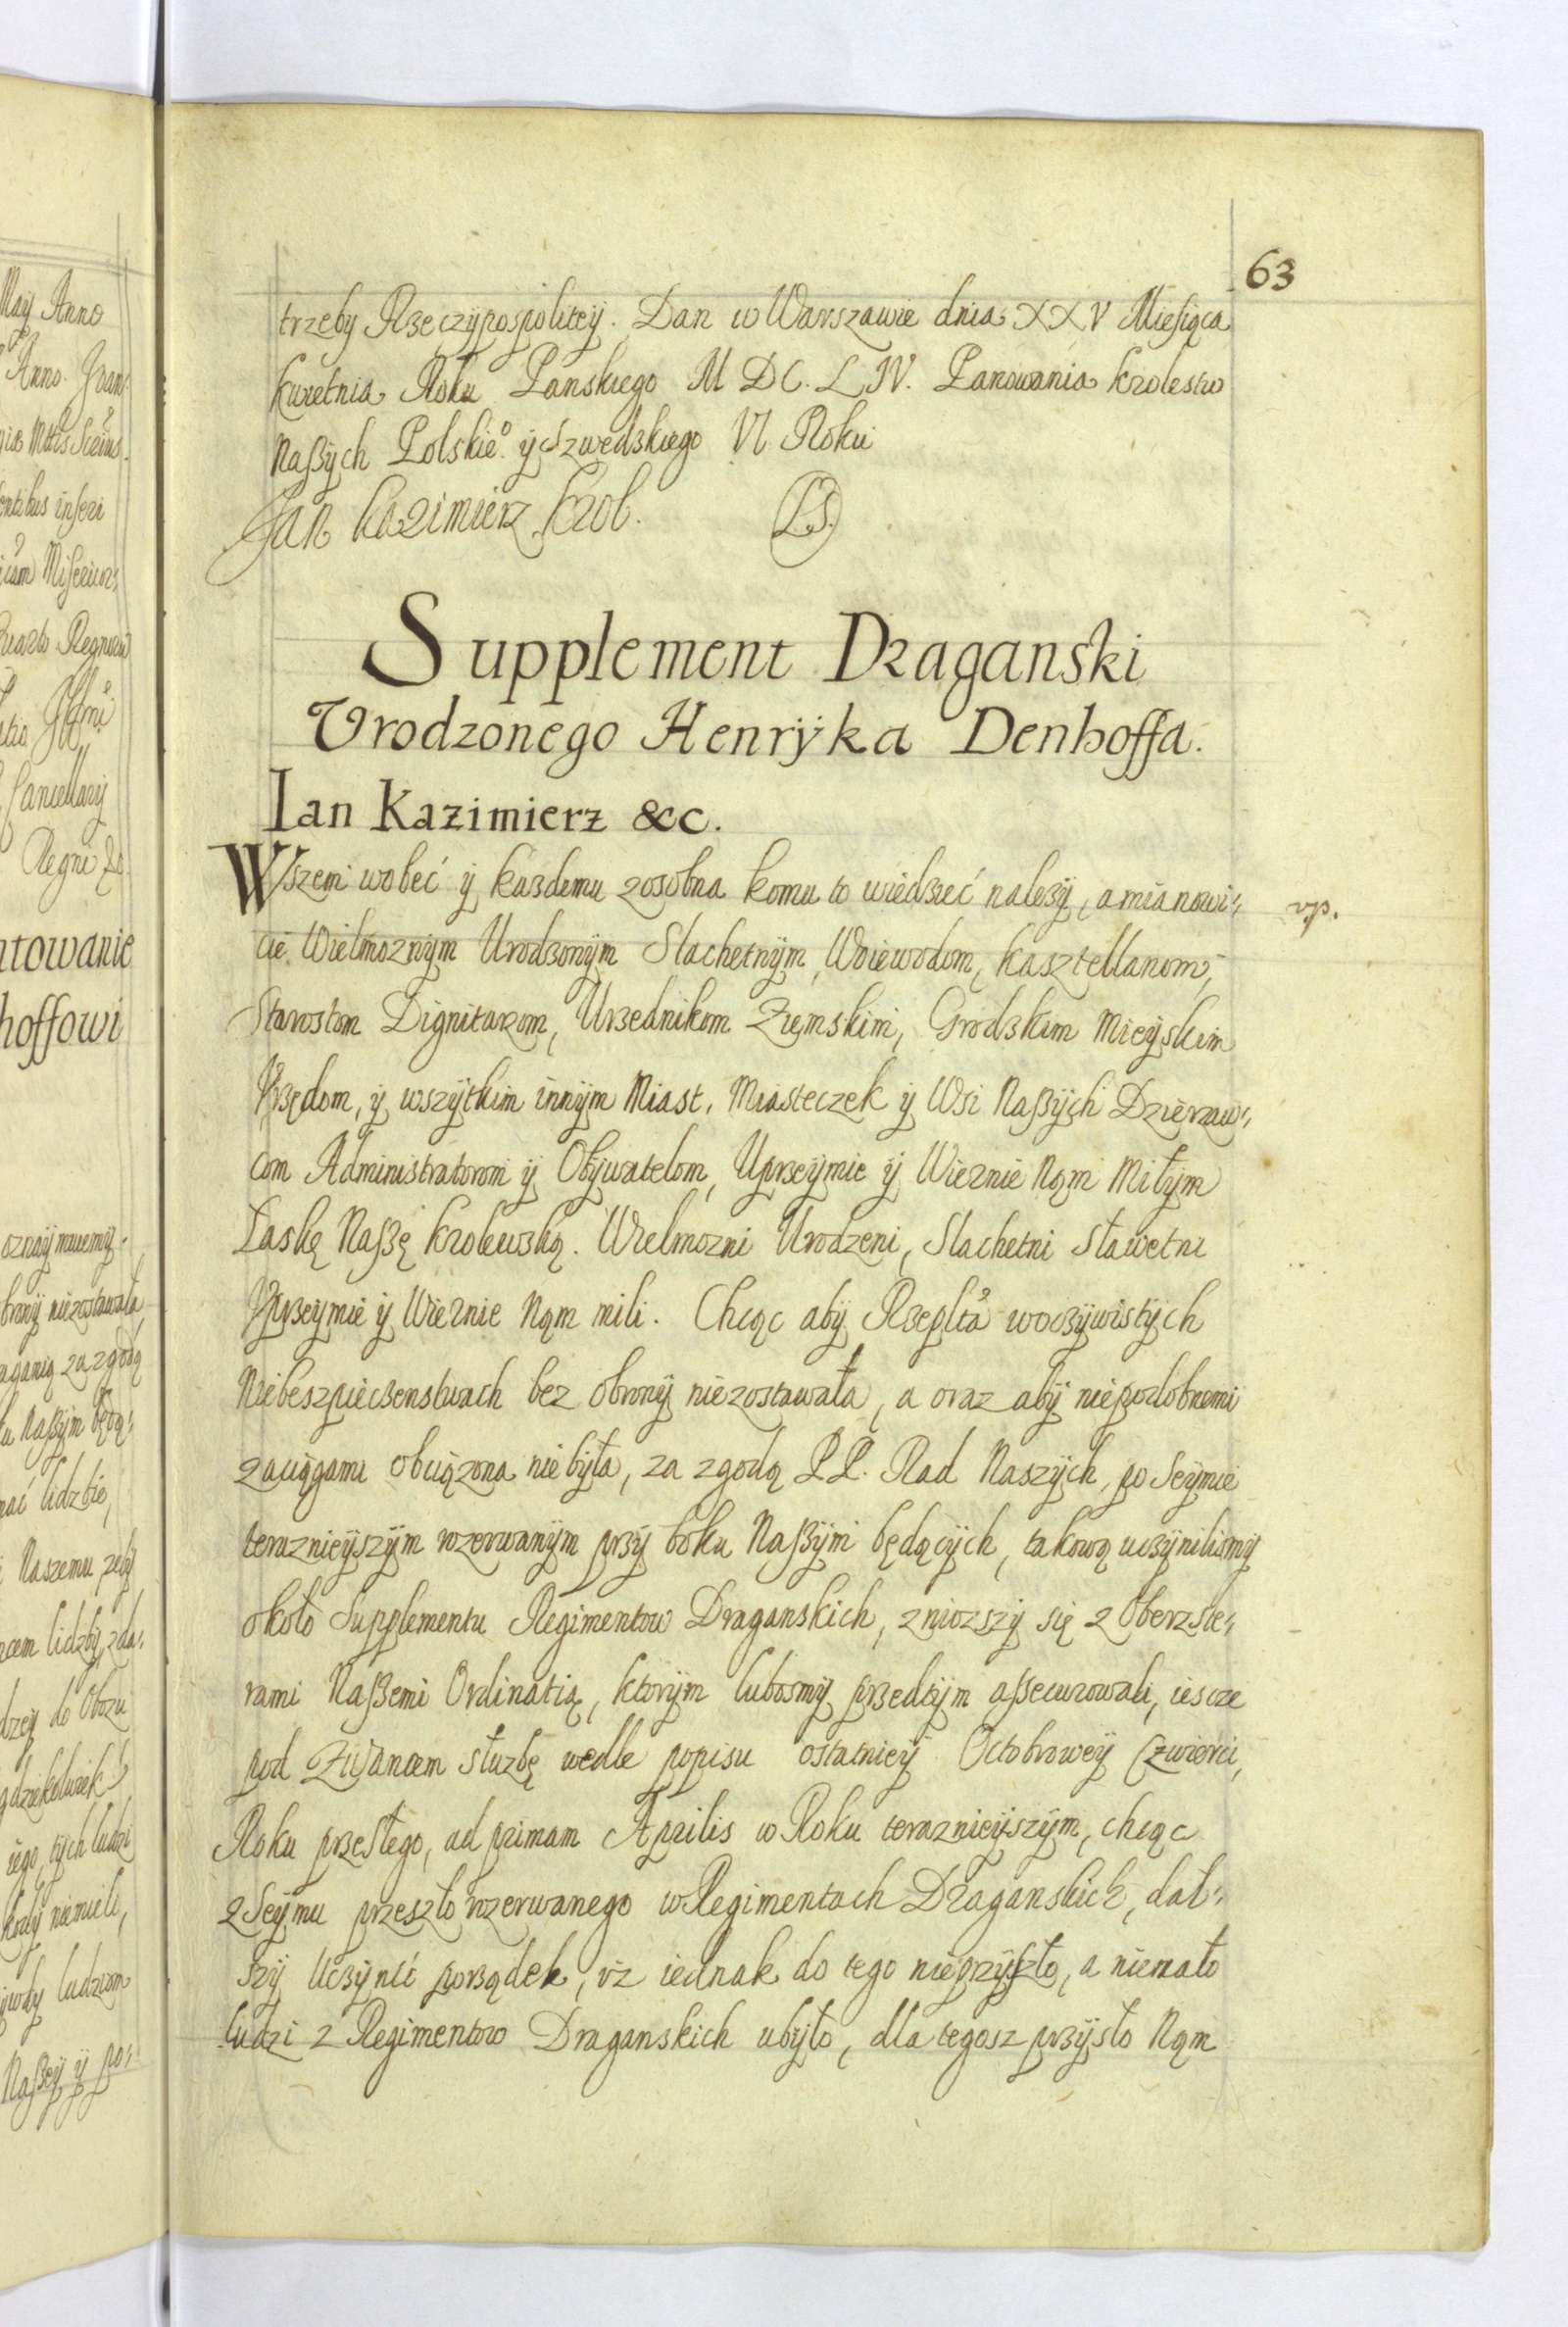 63
trzeby Rzeczypospolitey. Dan w Warszawie dnia XXV Miesiąca
kwietnia Roku Panskiego M DC. LIV. Panowania krolestw
naszych Polskieo y Szwedzkiego VI Roku
Jan Kazimierz Krol. LS.
Supplement Draganski
Vrodzonego Henryka Denhoffa.
Ian Kazimierz &c.
Wszem wobec y każdemu zosobna komu to wiedzieć należy, a mianowi:
vp.
cie Wielmoznym Urodzonym Slachetnym, Woiewodom, Kasztellanom,
Starostom Dignitarzom, Urzednikom Ziemskim, Grodzkim Mieyskim
Vrzędom, y wszytkim innym Miast, Miasteczek y Wsi Naszych Dzierzaw:
com Administratorom y Obywatelom, Uprzeymie y Wiernie Nąm Miłym
Łaskę Naszę Krolewską. Wielmozni Urodzeni, Slachetni Sławetni
Vprzeymie y Wiernie Nąm mili. Chcąc aby Rzeplta woczywistych
Niebeszpieczenstwach bez obrony niezostawała, a oraz aby niepodobnemi
zaciągami obciązona niebyła, za zgodą PP. Rad Naszych, po Seymie
teraznieyszym rozerwanym przy boku Naszym będących, takową uczynilismy
około Supplementu Regimentow Draganskich, zniozszy się z Oberszte:
rami Naszemi Ordinatią, ktorym lubosmy przedtym assecurowali, iescze
pod Zwancem służbę wedle popisu ostatniey Octobrowey Czwierci,
Roku przeszłego, ad primam Aprilis w Roku teraznieyszym, chcąc
z Seymu przeszło rozerwanego w Regimentach Draganskich, dał:
szy Uczynić porządek, iż iednak do tego nieprzyszło, a niemało
ludzi z Regimentow Draganskich ubyło, dla tegosz przyszło Nąm
May Anno
Anno
Cancellary
Regni &c.
towanie
hoffowi
niezostawała
za zgodą
Naszym będą:
lidzbie,
Naszemu
lidzby
do Obozu
gdziekolwiek
tych ludzi
niemieli,
ludziom
Naszey y po: